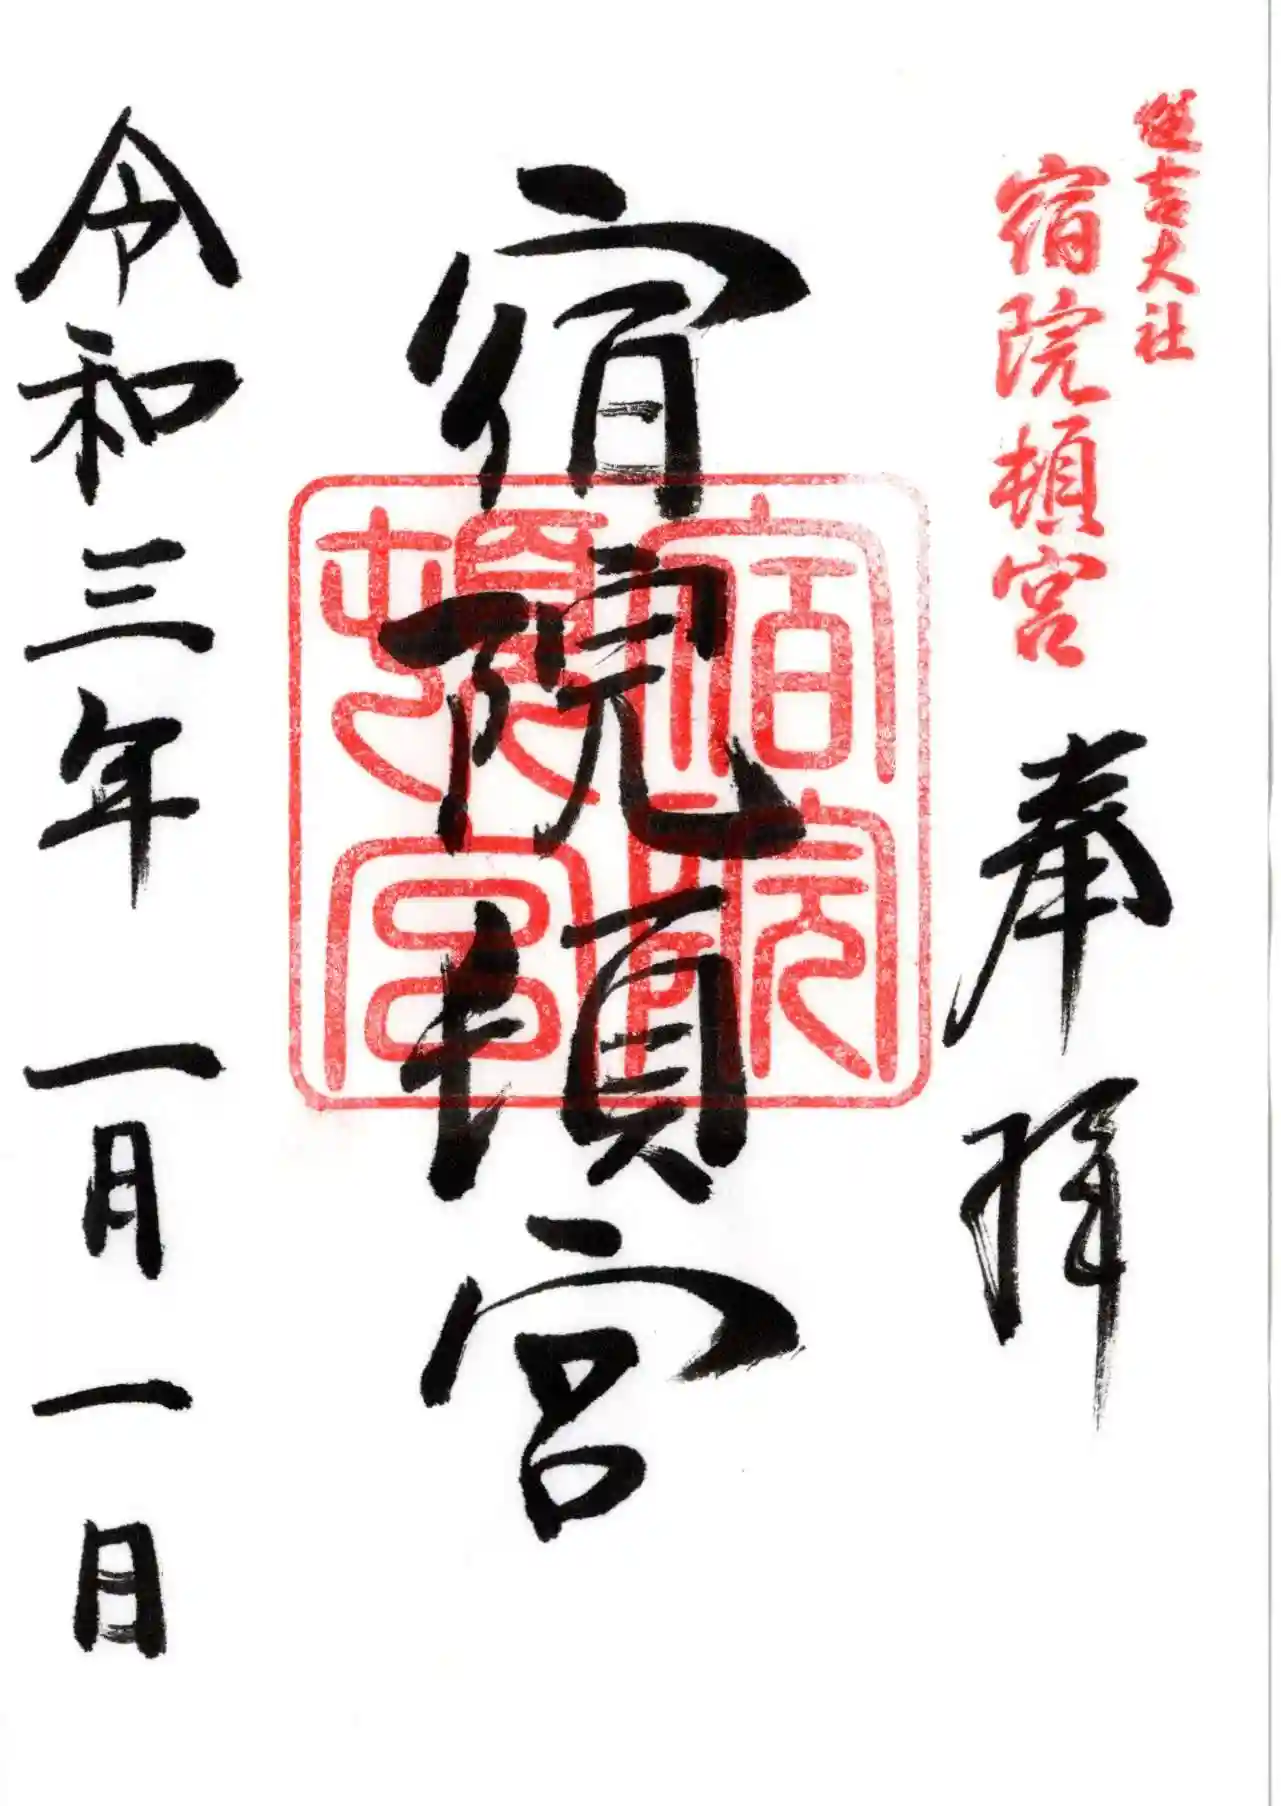 住吉大社
宿院頓宮
奉拝
宿院頓宮
宿院
頓宮
令和三年 一月一日